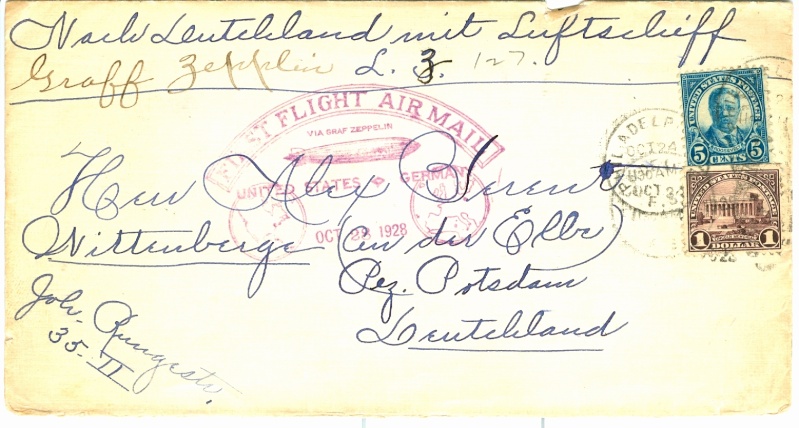 Nach Deutchland mit Luftschiff
Graff Zeppelin L. Z. 127.
FIRST FLIGHT AIR MAIL
VIA GRAF ZEPPELIN
UNITED STATES GERMANY
OCT 28 1928
UNITED STATES POSTAGE
5 CENTS 5
UNITED STATES POSTAGE
1 DOLLAR 1
PHILADELP
OCT 24
930AM
Herr Alex Berent
Wittenberge (an der Elbe)
Bez. Potsdam
Deutchland
Joh. Rungestr.
35-II